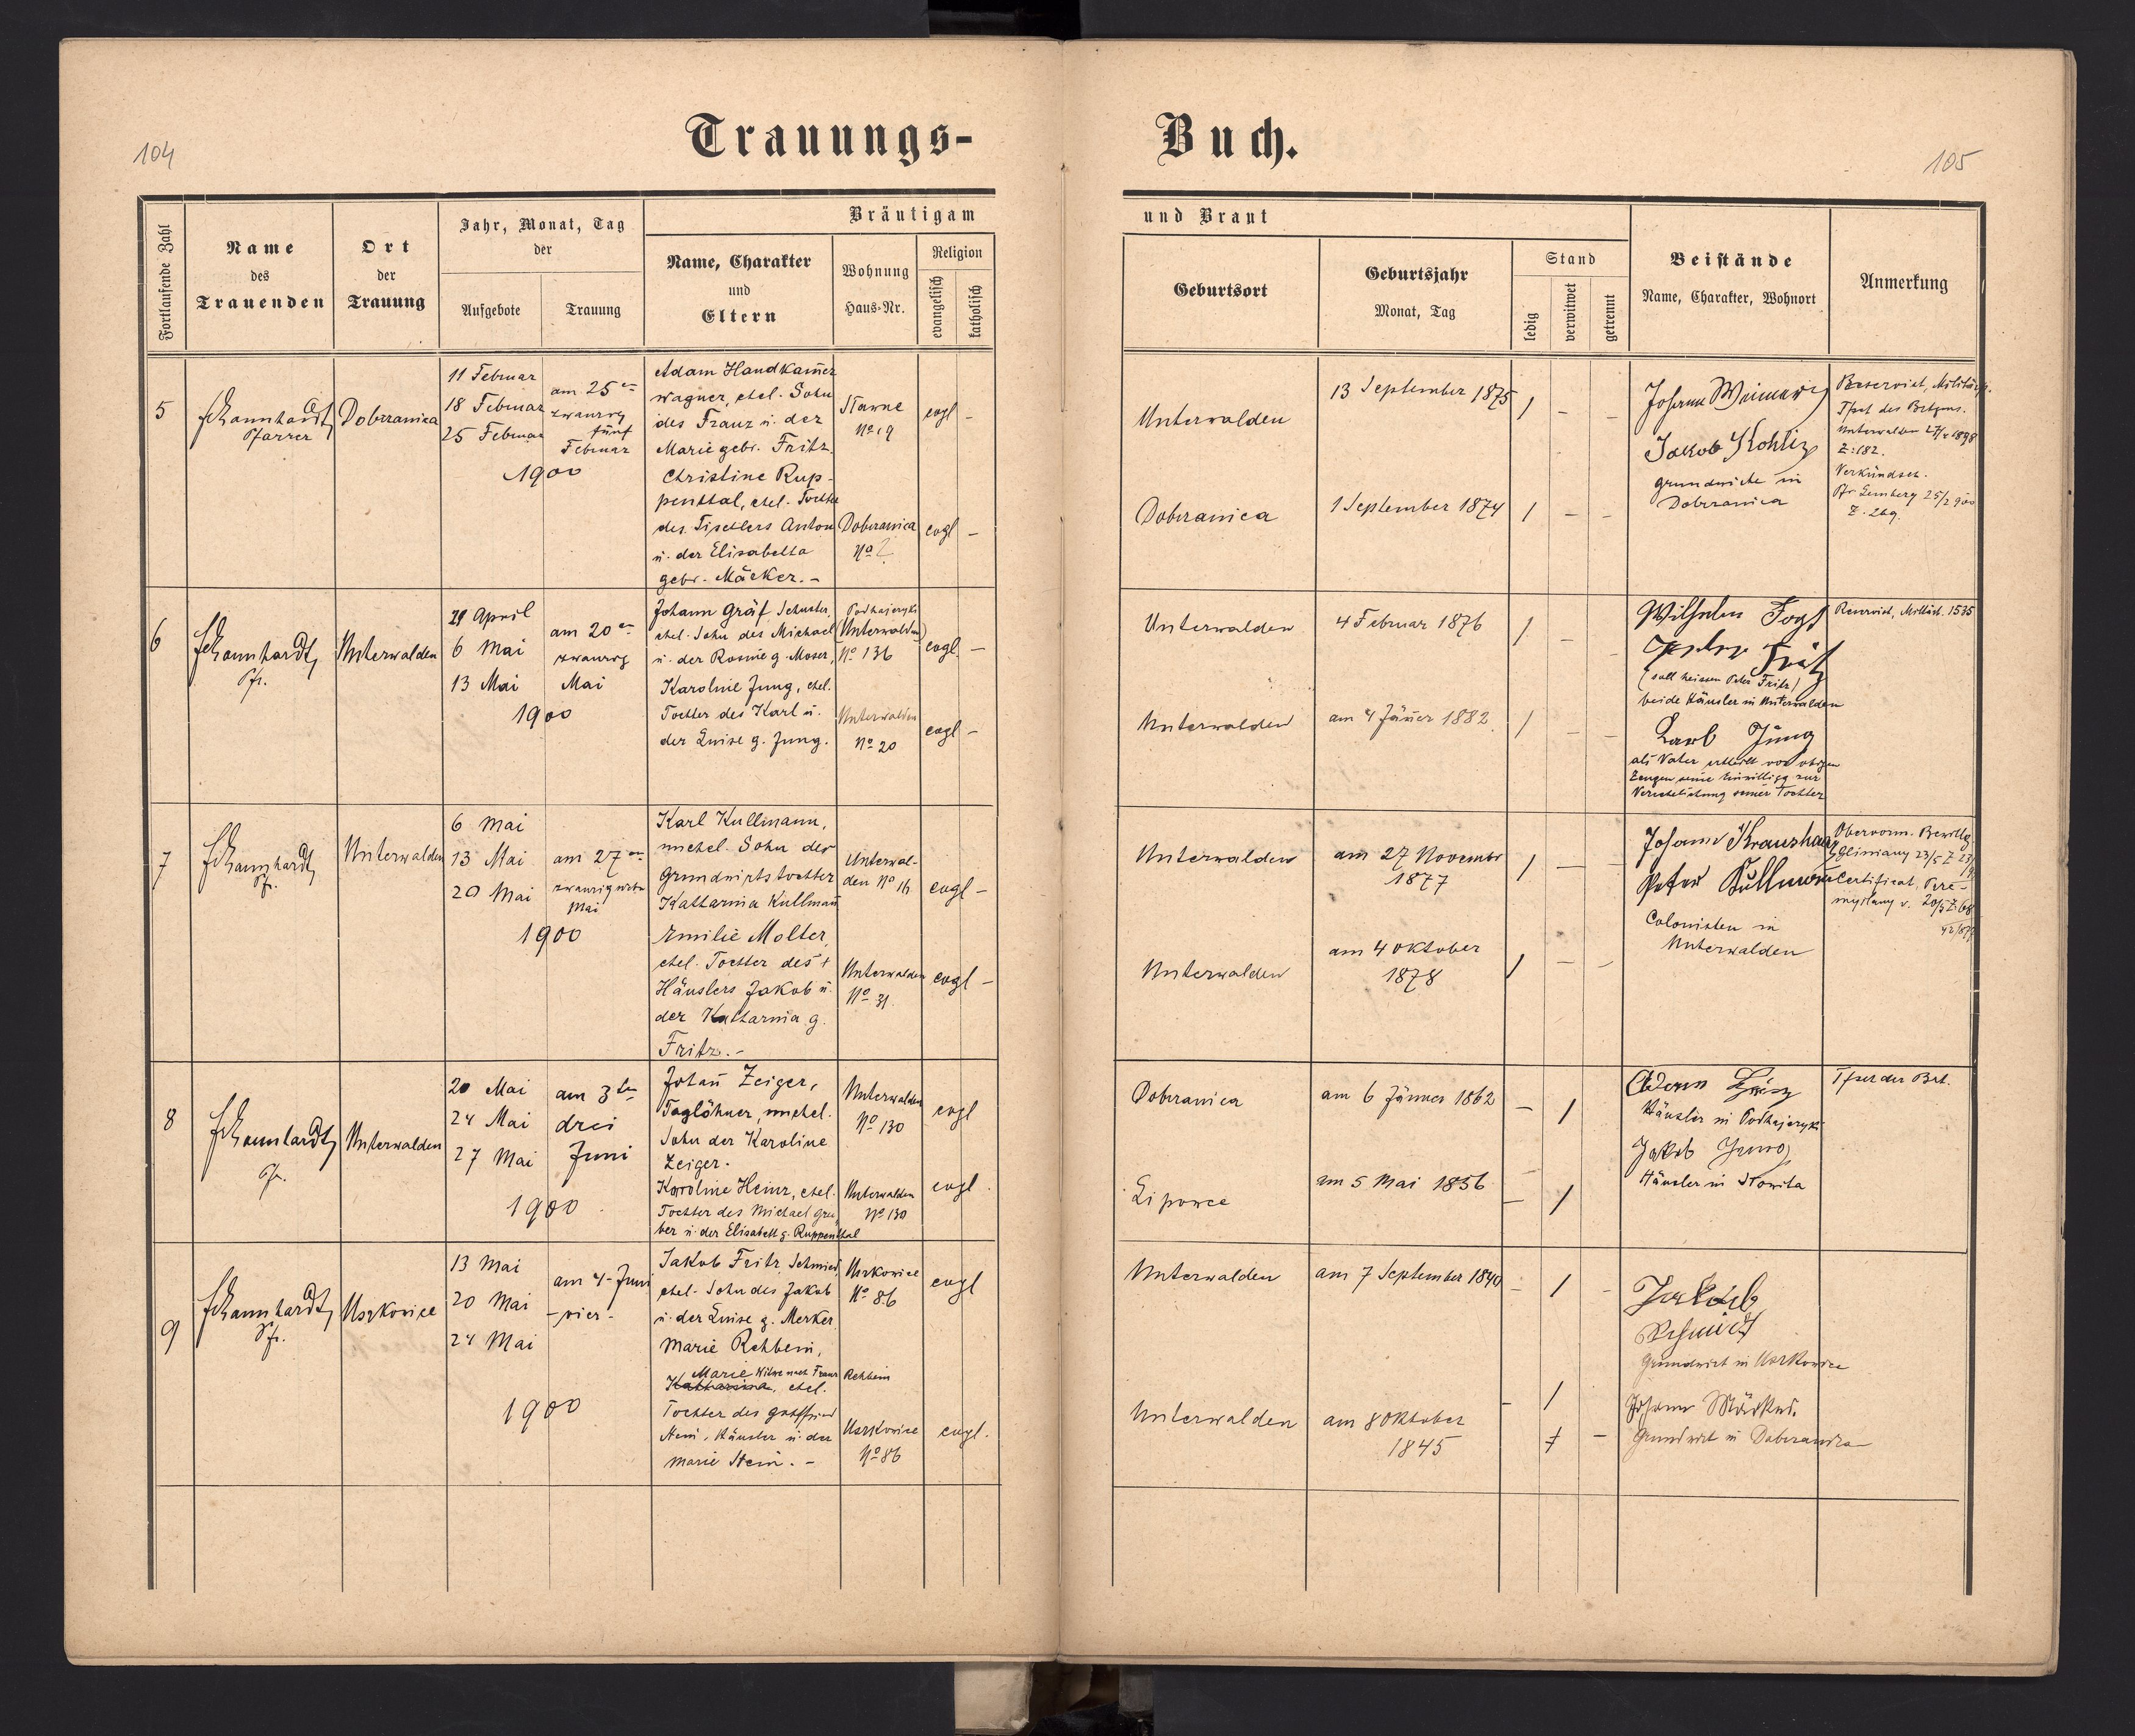 104
Trauungs-
Buch.
105
Fortlaufende Zahl
Name
des
Trauenden
Ort
der
Trauung
Jahr, Monat, Tag
der
Aufgebote
Trauung
Bräutigam
Name, Charakter
und
Eltern
Wohnung
Haus-Nr.
Religion
evangelisch
katholisch
und Braut
Geburtsort
Geburtsjahr
Monat, Tag
Stand
ledig
verwitwet
getrennt
Beistände
Name, Charakter, Wohnort
Anmerkung
5
Pfarrer
Dobrzanica
11 Februar
18 Februar
25 Februar
am 25
zwanzig
fünf
Februar
1900
Adam Handkam̄er
wagner, ehel. Sohn
des Franz u. der
Marie gebr. Fritz.
Christine Rup-
penthal, ehel. Tochter
des Tischlers Anton
u. der Elisabetha
gebr. Mäcker. -
No 19
evgl -
Dobrzanica
No 2
evgl -
Unterwalden
13 September 1875
/ - -
Dobrzanica
1 September 1874
/ - -
Johann
Jakob
grundwirte in
Dobrzanica
Reservist,
Unterwalden
Z: 182.
Verkündsch.
Pfr Lemberg 25/2 900
Z. 269.
6
Pfr.
Unterwalden
29 April
6 Mai
13 Mai
am 20
zwanzig
Mai
1900
Johann Gräf Schuster,
ehel. Sohn des Michael
u. der Rosine g. Moser,
Karoline Jung, ehel.
Tochter des Karl u.
der Luise g. Jung.
Podhajczyki
(Unterwalden)
No 136
evgl. -
Unterwalden
No 20
evgl -
Unterwalden
4 Februar 1876
/ - -
Unterwalden
am 4 Jäner 1882
/ - -
Wilhelm Fogt
(soll heissen Peter Fritz)
beide Häusler in Unterwalden
Karl Jung
als Vater ertheilt vor obigen
Zeugen seine Einwilligg zur
Verehelichung seiner Tochter
Reservist, Militärb. 1535
7
Pfr.
Unterwalden
6 Mai
13 Mai
20 Mai
am 27
Mai
1900
Karl Kullmann,
unehel. Sohn der
Grundwirtstochter
Katharina Kullman̄
Emilie Molter,
ehel. Tochter des †
Häuslers Jakob u.
der Katharina g.
Fritz. -
Unterwal-
den No 16
evgl -
Unterwalden
No 31.
evgl -
Unterwalden
am 27 November
1877
/ - -
Unterwalden
am 4 Oktober
1878
/ - -
Johann Kraushaar
Peter Kullmann
Colonisten in
Unterwalden
Obervorm. Bewillg.
Gliniany 23/5
Certificat, Prze-
myslany v. 20/5
8
Pfr.
Unterwalden
20 Mai
24 Mai
27 Mai
am 3ten
drei
Juni
1900
Johan̄ Zeiger,
Taglöhner, unehel.
Sohn der Karoline
Zeiger.
Karoline Heinz, ehel.
Tochter des Michael Gru-
ber u. der Elisabeth g. Ruppenthal
Unterwalden
No 130
evgl
Unterwalden
No 130
evgl.
Dobrzanica
am 6 Jänner 1862
- /
Lipowce
am 5 Mai 1856
- /
Häusler in Podhajczyki
Jakob Jung
Häusler in
9
Pfr.
Uszkowice
13 Mai
20 Mai
24 Mai
am 4 - Juni
- vier -
1900
Jakob Fritz, Schmied,
ehel. Sohn des Jakob
u. der Luise g. Merker
Marie Rehbein,
Marie Witwe nach Franz Rehbein
Katharina, ehel.
Tochter des Gottfried
Stein, Häusler u. der
Marie Stein. -
Uszkowice
No 86
evgl
Uszkowice
No 86
evgl.
Unterwalden
am 7 September 1840
- / -
Unterwalden
am 8 Oktober
1845
- / -
Jakob
Schmidt
Grundwirt in Uszkowice
Johann
Grundwirt in Dobrzanica